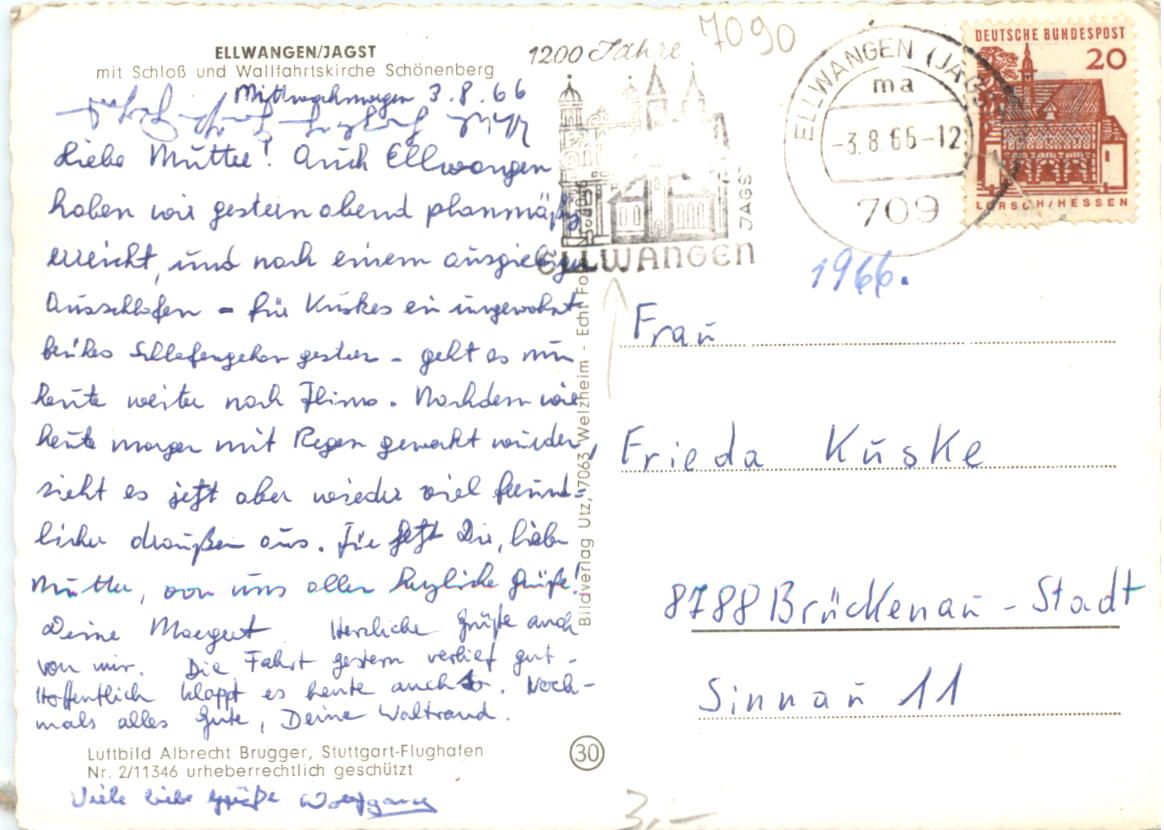 ELLWANGEN/JAGST
mit Schloß und Wallfahrtskirche Schönenberg
Mittwochmorgen 3.8.66
Liebe Mutter! Auch Ellwangen
haben wir gestern abend planmäßig
erreicht, und nach einem ausgiebigen
Ausschlafen – für Kuskes ein ungewohnt
frühes Schlafengehen gestern – geht es nun
heute weiter nach Ilimo. Nachdem wir
heute morgen mit Regen geweckt wurden,
sieht es jetzt aber wieder viel freund=
licher draußen aus. Für jetzt Dir, liebe
Mutter, von uns allen herzliche Grüße!
Deine Margret Herzliche Grüße auch
von mir. Die Fahrt gestern verlief gut –
Hoffentlich klappt es heute auch so. Noch-
mals alles Gute, Deine Waltraud.
Luftbild Albrecht Brugger, Stuttgart-Flughafen
Nr. 2/11346 urheberrechtlich geschützt
Viele liebe Grüße Wolfgang
Bildverlag Utz, 7063 Welzheim - Echt Fo
30
1200 Jahre
7090
ELLWANGEN
JAGST
ELLWANGEN (JAGST)
ma
-3.8.66-12
709
DEUTSCHE BUNDESPOST
20
LORSCH/HESSEN
1966.
Frau
Frieda Kuske
8788 Brückenau - Stadt
Sinnau 11
3,-